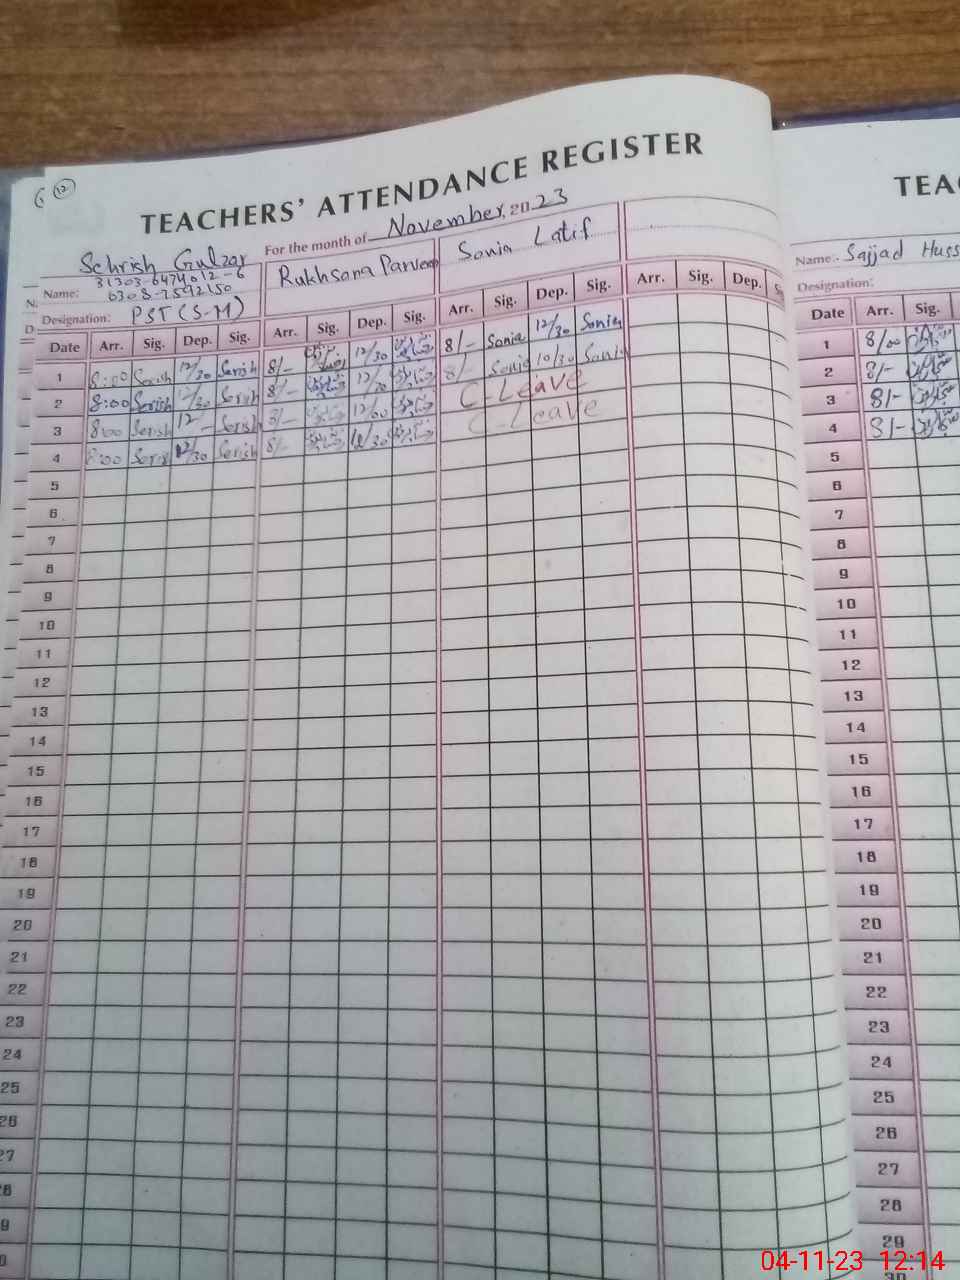 12
TEACHERS' ATTENDANCE REGISTER
For the month of November, 2023
Sehrish Gulzar
31303-6474012-6
Name: 0308-7592150
Designation: PST (S-M)
Rukhsana Parveen
Sonia Latif
Date Arr. Sig. Dep. Sig. Arr. Sig. Dep. Sig. Arr. Sig. Dep. Sig. Arr. Sig. Dep. S
1 8:00 Serish 12/30 Serish 8/- 12/30 8/- Sonia 12/30 Sonia
2 8:00 Serish 12/30 Serish 8/- 12/30 8/- Sonia 10/30 Sonia
3 8:00 Serish 12 - Serish 8/- 12/00 C-Leave
4 8:00 Serish 12/30 Serish 8/- C-Leave
5
6
7
8
9
10
11
12
13
14
15
16
17
18
19
20
21
22
23
24
25
26
27
28
9
0
TEA
Name:- Sajjad Huss
Designation:
Date Arr. Sig.
1 8/00
2 8/-
3 8/-
4 8/-
5
6
7
8
9
10
11
12
13
14
15
16
17
18
19
20
21
22
23
24
25
26
27
28
29
30
04-11-23 12:14